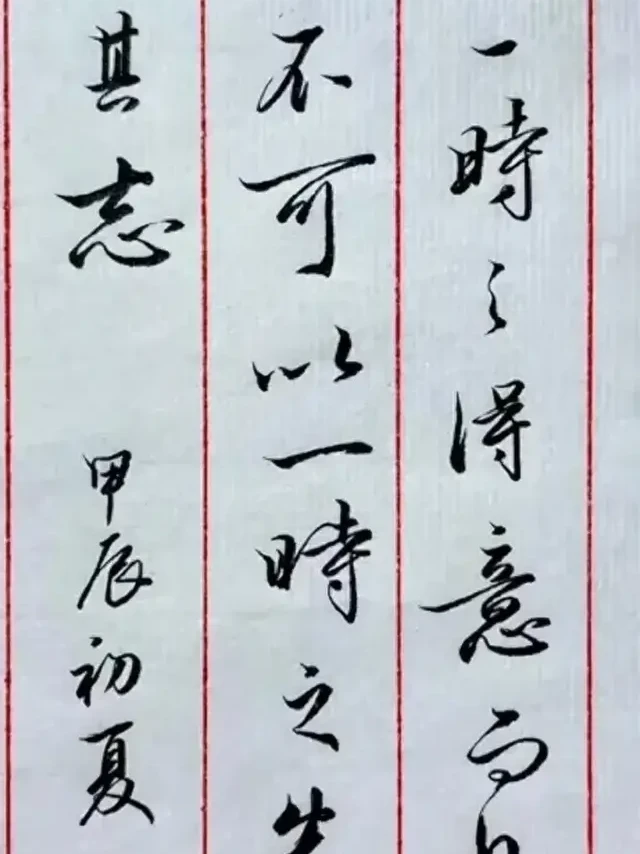 一時之得意而
不可以一時之失
其志
甲辰初夏